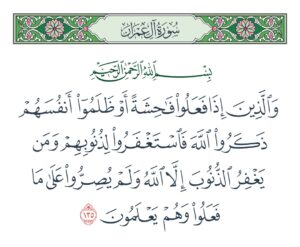 سُورَةُ آلِ عِمْرَانَ
بِسْمِ اللَّهِ الرَّحْمَٰنِ الرَّحِيمِ
وَالَّذِينَ إِذَا فَعَلُوا فَاحِشَةً أَوْ ظَلَمُوا أَنفُسَهُمْ
ذَكَرُوا اللَّهَ فَاسْتَغْفَرُوا لِذُنُوبِهِمْ وَمَن
يَغْفِرُ الذُّنُوبَ إِلَّا اللَّهُ وَلَمْ يُصِرُّوا عَلَىٰ مَا
فَعَلُوا وَهُمْ يَعْلَمُونَ ١٣٥